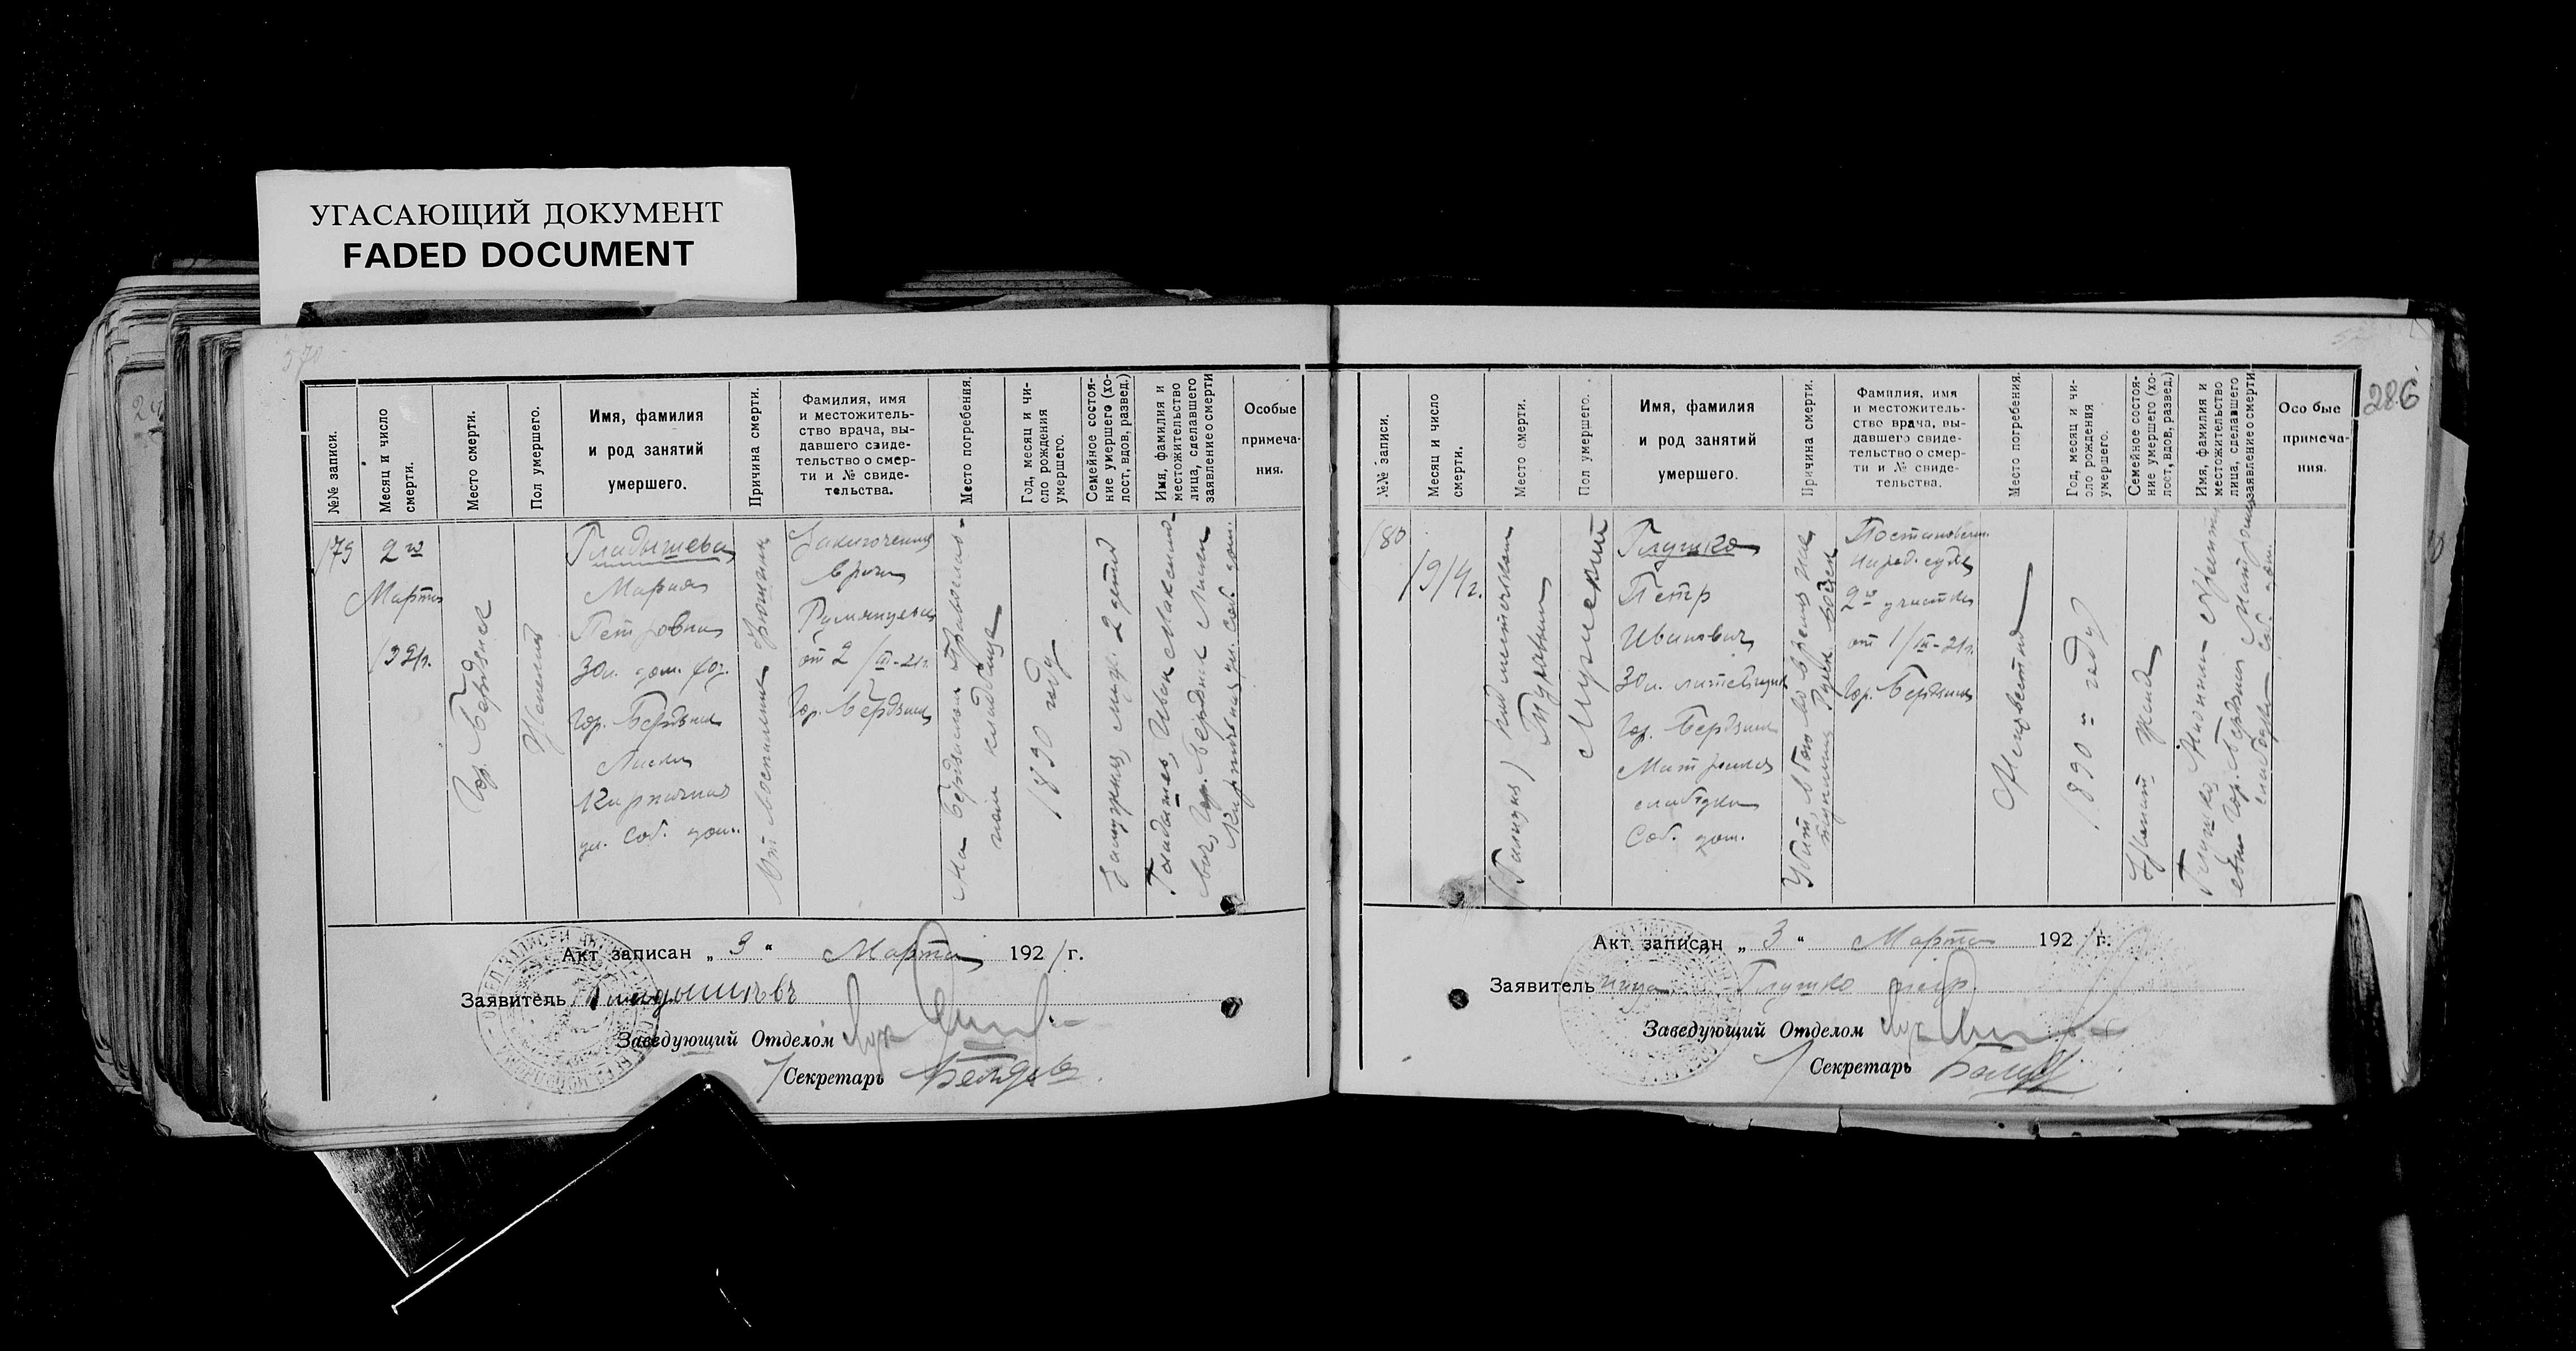 УГАСАЮЩИЙ ДОКУМЕНТ
FADED DOCUMENT
570
№№ записи.
Месяц и число
смерти.
Место смерти.
Пол умершего.
Имя, фамилия
и род занятий
умершего.
Причина смерти.
Фамилия, имя
и местожитель-
ство врача, вы-
давшего свиде-
тельство о смер-
ти и № свиде-
тельства.
Место погребения.
Год, месяц и чи-
сло рождения
умершего.
Семейное состоя-
ние умершего (хо-
лост, вдов, развед.)
Имя, фамилия и
местожительство
лица, сделавшего
заявление о смерти
Особые
примеча-
ния.
179
2го
Марта
1921г.
Гор. Бердянск
Женский
Гладышева
Мария
Петровна
30л. дом. хоз.
Гор. Бердянск
Лиски
Кирпичная
ул. Соб. дом.
От воспаления брюшины
Заключения
врача
Румянцева
от 2/III-21г.
Гор. Бердянск
На Бердянском Православ-
ном кладбище
1890 году
Замужняя, муж. 2 детей
Гладышев, Иван Максимо-
вич, Гор. Бердянск Лиски
Кирпичная ул. Соб. дом.
Акт записан „ 3 “ Марта 1921 г.
Заявитель Гладышевъ
Заведующий Отделом
Секретарь
286
№№ записи.
Месяц и число
смерти.
Место смерти.
Пол умершего.
Имя, фамилия
и род занятий
умершего.
Причина смерти.
Фамилия, имя
и местожитель-
ство врача, вы-
давшего свиде-
тельство о смер-
ти и № свиде-
тельства.
Место погребения.
Год, месяц и чи-
сло рождения
умершего.
Семейное состоя-
ние умершего (хо-
лост, вдов, развед.)
Имя, фамилия и
местожительство
лица, сделавшего
заявление о смерти
Особые
примеча-
ния.
180
1914г.
(Галиция) под местечком
Мужской
Глушко
Петр
Иванович
30л. литейщик
Гор. Бердянск
Матросская
слободка
Соб. дом.
Убит в бою во время на
ступления Русск. войск
Постановлен.
народ. судьи
2го участка
от 1/III-21г.
Гор. Бердянск
Неизвестно
1890 = году
Женат = жена
Глушко,
Гор. Бердянск Матросская
слободка Соб. дом.
Акт записан „ 3 “ Марта 1921 г.
Заявитель Глушко
Заведующий Отделом
Секретарь